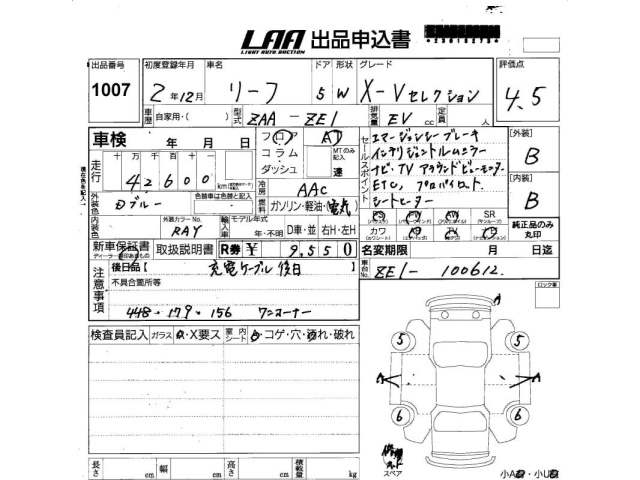 LAA 出品申込書
LIGHT AUTO AUCTION
出品番号 初度登録年月 車名 ドア 形状 グレード 評価点
1007 2年12月 リーフ 5 W X-Vセレクション 4.5
車歴 自家用・( ) 型式 ZAA-ZE1 排気量 EV cc 定員 人
車検 年 月 日 フロア AT
エマージェンシーブレーキ
[外装]
コラム MTのみ記入
インテリジェントルームミラー
B
走行 十万千百十 ダッシュ 速
ナビ・TV アラウンドビューモニター
42600 km
冷房 AAC
ETC, プロパイロット
[内装]
外装色 Dブルー 色替車は色替と記入
燃料 ガソリン・軽油・(電気)
シートヒーター
B
セールスポイント
SR
内装色 外装カラーNo. RAY 輸入車 モデル年式 年・不明 D車・並 右H・左H
カワ
純正品のみ丸印
新車保証書 取扱説明書 R券 ¥ 9,550
名変期限 月 日迄
注意事項 後日品【 充電ケーブル後日
車台No. ZE1-100612
不具合箇所等
ロック車
448・179・156 ワンオーナー
検査員記入 ガラス A・X要ス 室内シート コゲ・穴・汚れ・破れ
A
5 5
A A
6 6
スペア
長さ cm 幅 cm 高さ cm 積載量 kg
小A・小U